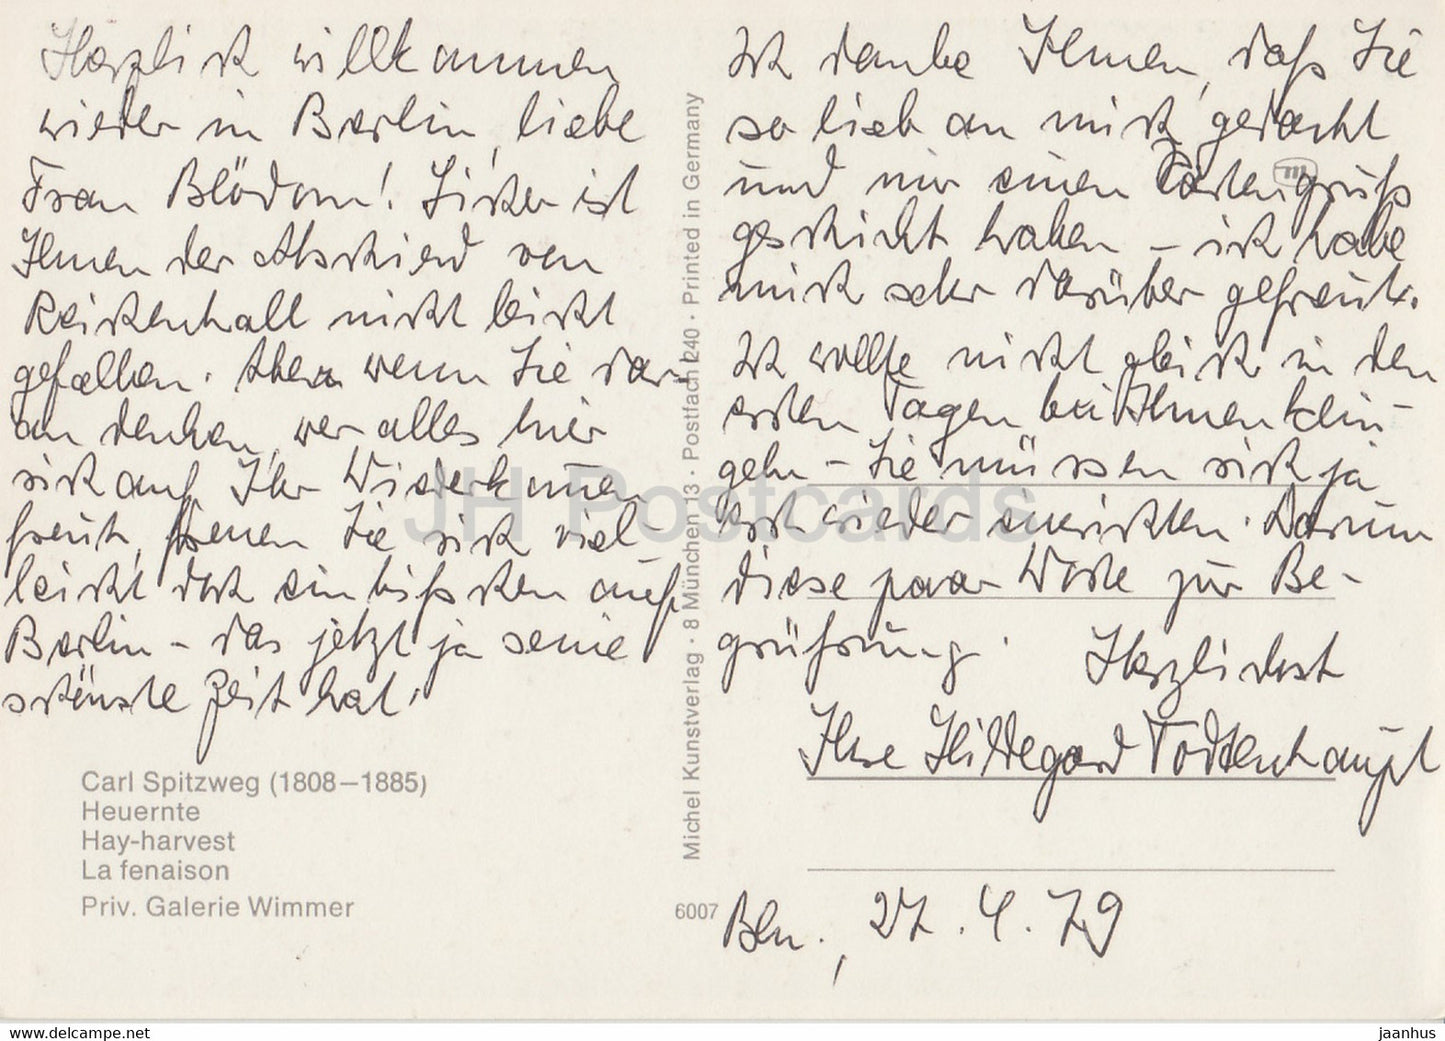 Herzlich willkommen
wieder in Berlin, liebe
Frau Blödorn! Sicher ist
Ihnen der Abschied von
Reichenhall nicht leicht
gefallen. Aber wenn Sie dar-
an denken, wer alles hier
sich auf Ihr Wiederkommen
freut, freuen Sie sich viel-
leicht doch ein bißchen auf
Berlin - das jetzt ja seine
schönste Zeit hat.
Carl Spitzweg (1808–1885)
Heuernte
Hay-harvest
La fenaison
Priv. Galerie Wimmer
Michel Kunstverlag · 8 München 13 · Postfach 240 · Printed in Germany
6007
m
Ich danke Ihnen, daß Sie
so lieb an mich gedacht
und mir einen Kartengruß
geschickt haben - ich habe
mich sehr darüber gefreut.
Ich wollte nicht gleich in den
ersten Tagen bei Ihnen klin-
geln - Sie müssen sich ja
erst wieder einrichten. Darum
diese paar Worte zur Be-
grüßung. Herzlichst
Ihre Hildegard Todtenhaupt
Bln., 27.4.79
JH Postcards
www.delcampe.net
jaanhus